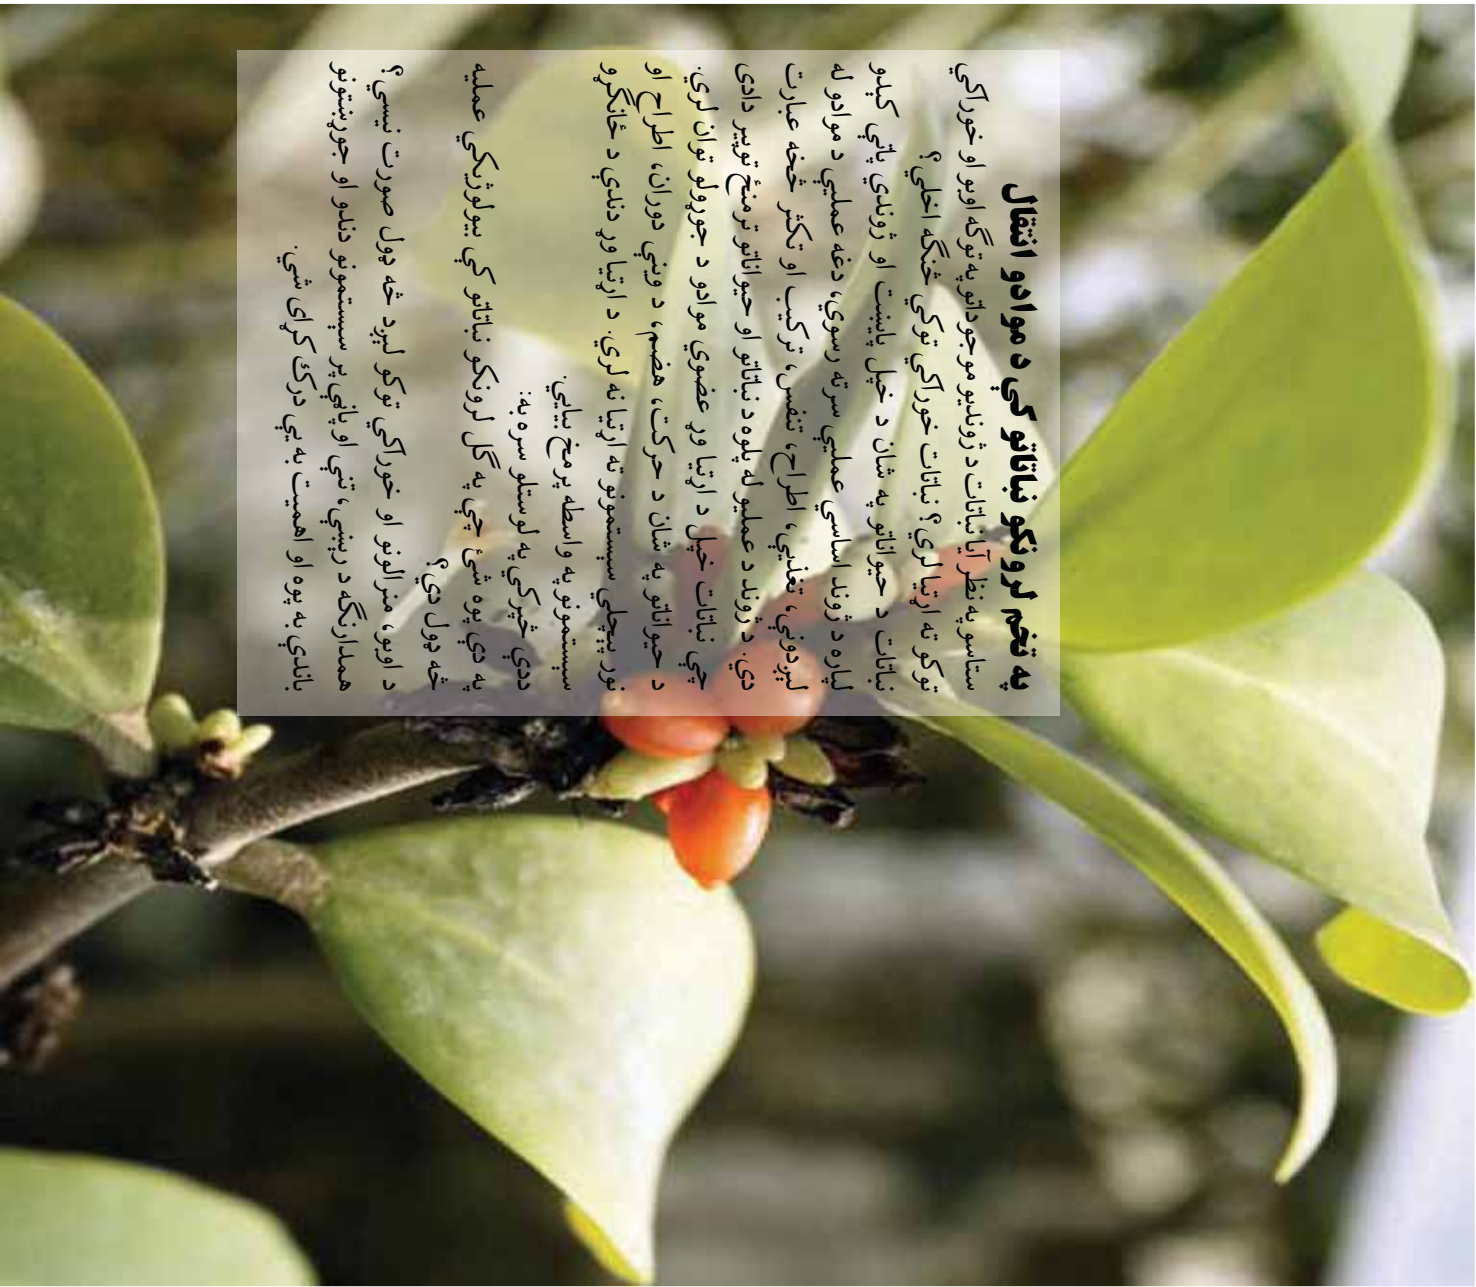 په تخم لرونکو نباتاتو کې د موادو انتقال
ستاسو په نظر آیا نباتات د ژوندیو موجوداتو په توګه اوبو او خوراکي
توکو ته اړتیا لري؟ نباتات خوراکي توکي څنګه اخلي؟
نباتات د حیواناتو په شان د خپل پایښت او ژوندي پاتې کېدو
لپاره د ژوند اساسي عملیې سرته رسوي، دغه عملیې د موادو له
لېږدونې، تغذیې، اطراح، تنفس، ترکیب او تکثر څخه عبارت
دي. د ژوند د عملیو له پلوه د نباتاتو او حیواناتو ترمنځ توپیر دادی
چې نباتات خپل د اړتیا وړ عضوي موادو د جوړولو توان لري.
د حیواناتو په شان د حرکت، هضم، د وینې دوران، اطراح او
نور پېچلي سیستمونو ته اړتیا نه لري. د اړتیا وړ دندې د ځانګړو
سیستمونو په واسطه پرمخ بیایي.
ددې څپرکي په لوستلو سره به:
په دې پوه شئ چې په ګل لرونکو نباتاتو کې بیولوژیکي عملیه
څه ډول دي؟
د اوبو، منرالونو او خوراکي توکو لېږد څه ډول صورت نیسي؟
همدارنګه د ریښې، تنې او پاڼې پر سیستمونو دندو او جوړښتونو
باندې به پوه او اهمیت به یې درک کړای شي.